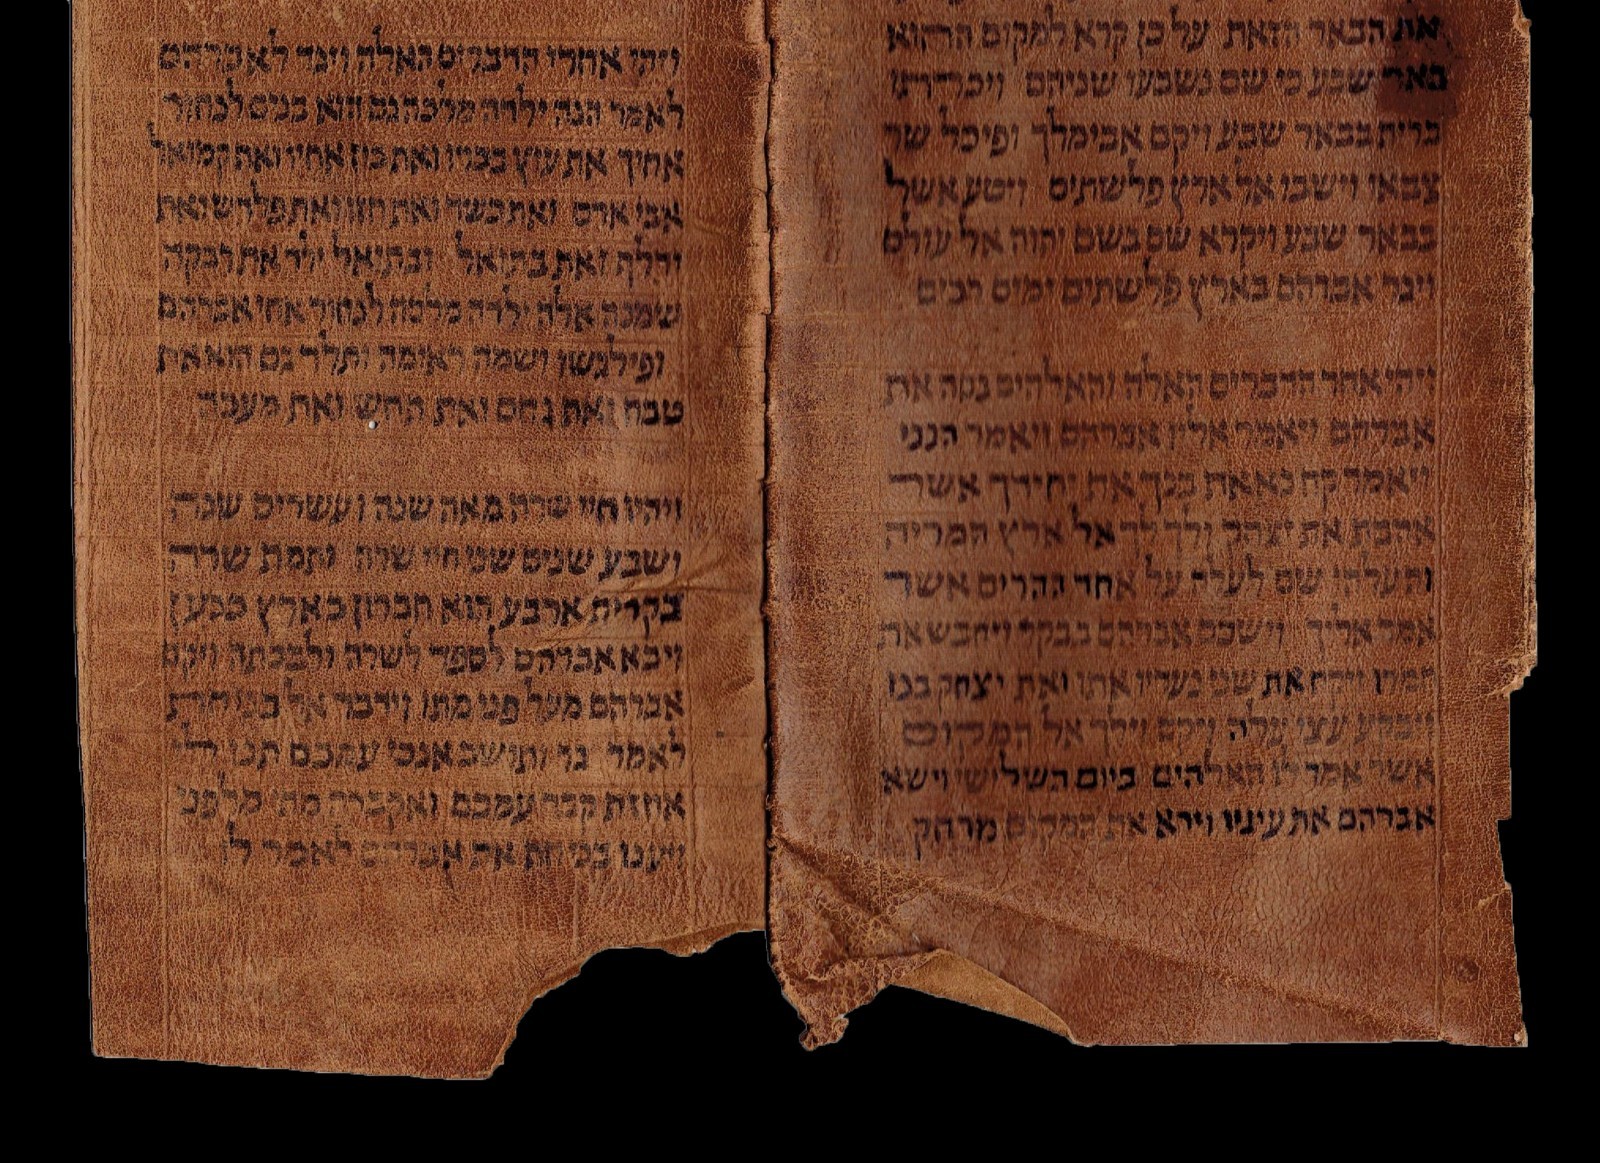 את הבאר הזאת על כן קרא למקום ההוא
באר שבע כי שם נשבעו שניהם ויכרתו
ברית בבאר שבע ויקם אבימלך ופיכל שר
צבאו וישבו אל ארץ פלשתים ויטע אשל
בבאר שבע ויקרא שם בשם יהוה אל עולם
ויגר אברהם בארץ פלשתים ימים רבים
ויהי אחר הדברים האלה והאלהים נסה את
אברהם ויאמר אליו אברהם ויאמר הנני
ויאמר קח נא את בנך את יחידך אשר
אהבת את יצחק ולך לך אל ארץ המריה
והעלהו שם לעלה על אחד ההרים אשר
אמר אליך וישכם אברהם בבקר ויחבש את
חמרו ויקח את שני נעריו אתו ואת יצחק בנו
ויבקע עצי עלה ויקם וילך אל המקום
אשר אמר לו האלהים ביום השלישי וישא
אברהם את עיניו וירא את המקום מרחק
ויהי אחרי הדברים האלה ויגד לאברהם
לאמר הנה ילדה מלכה גם הוא בנים לנחור
אחיך את עוץ בכרו ואת בוז אחיו ואת קמואל
אבי ארם ואת כשד ואת חזו ואת פלדש ואת
ידלף ואת בתואל ובתואל ילד את רבקה
שמנה אלה ילדה מלכה לנחור אחי אברהם
ופילגשו ושמה ראומה ותלד גם הוא את
טבח ואת גחם ואת תחש ואת מעכה
ויהיו חיי שרה מאה שנה ועשרים שנה
ושבע שנים שני חיי שרה ותמת שרה
בקרית ארבע הוא חברון בארץ כנען
ויבא אברהם לספד לשרה ולבכתה ויקם
אברהם מעל פני מתו וידבר אל בני חת
לאמר גר ותושב אנכי עמכם תנו לי
אחזת קבר עמכם ואקברה מתי מלפני
ויענו בני חת את אברהם לאמר לו